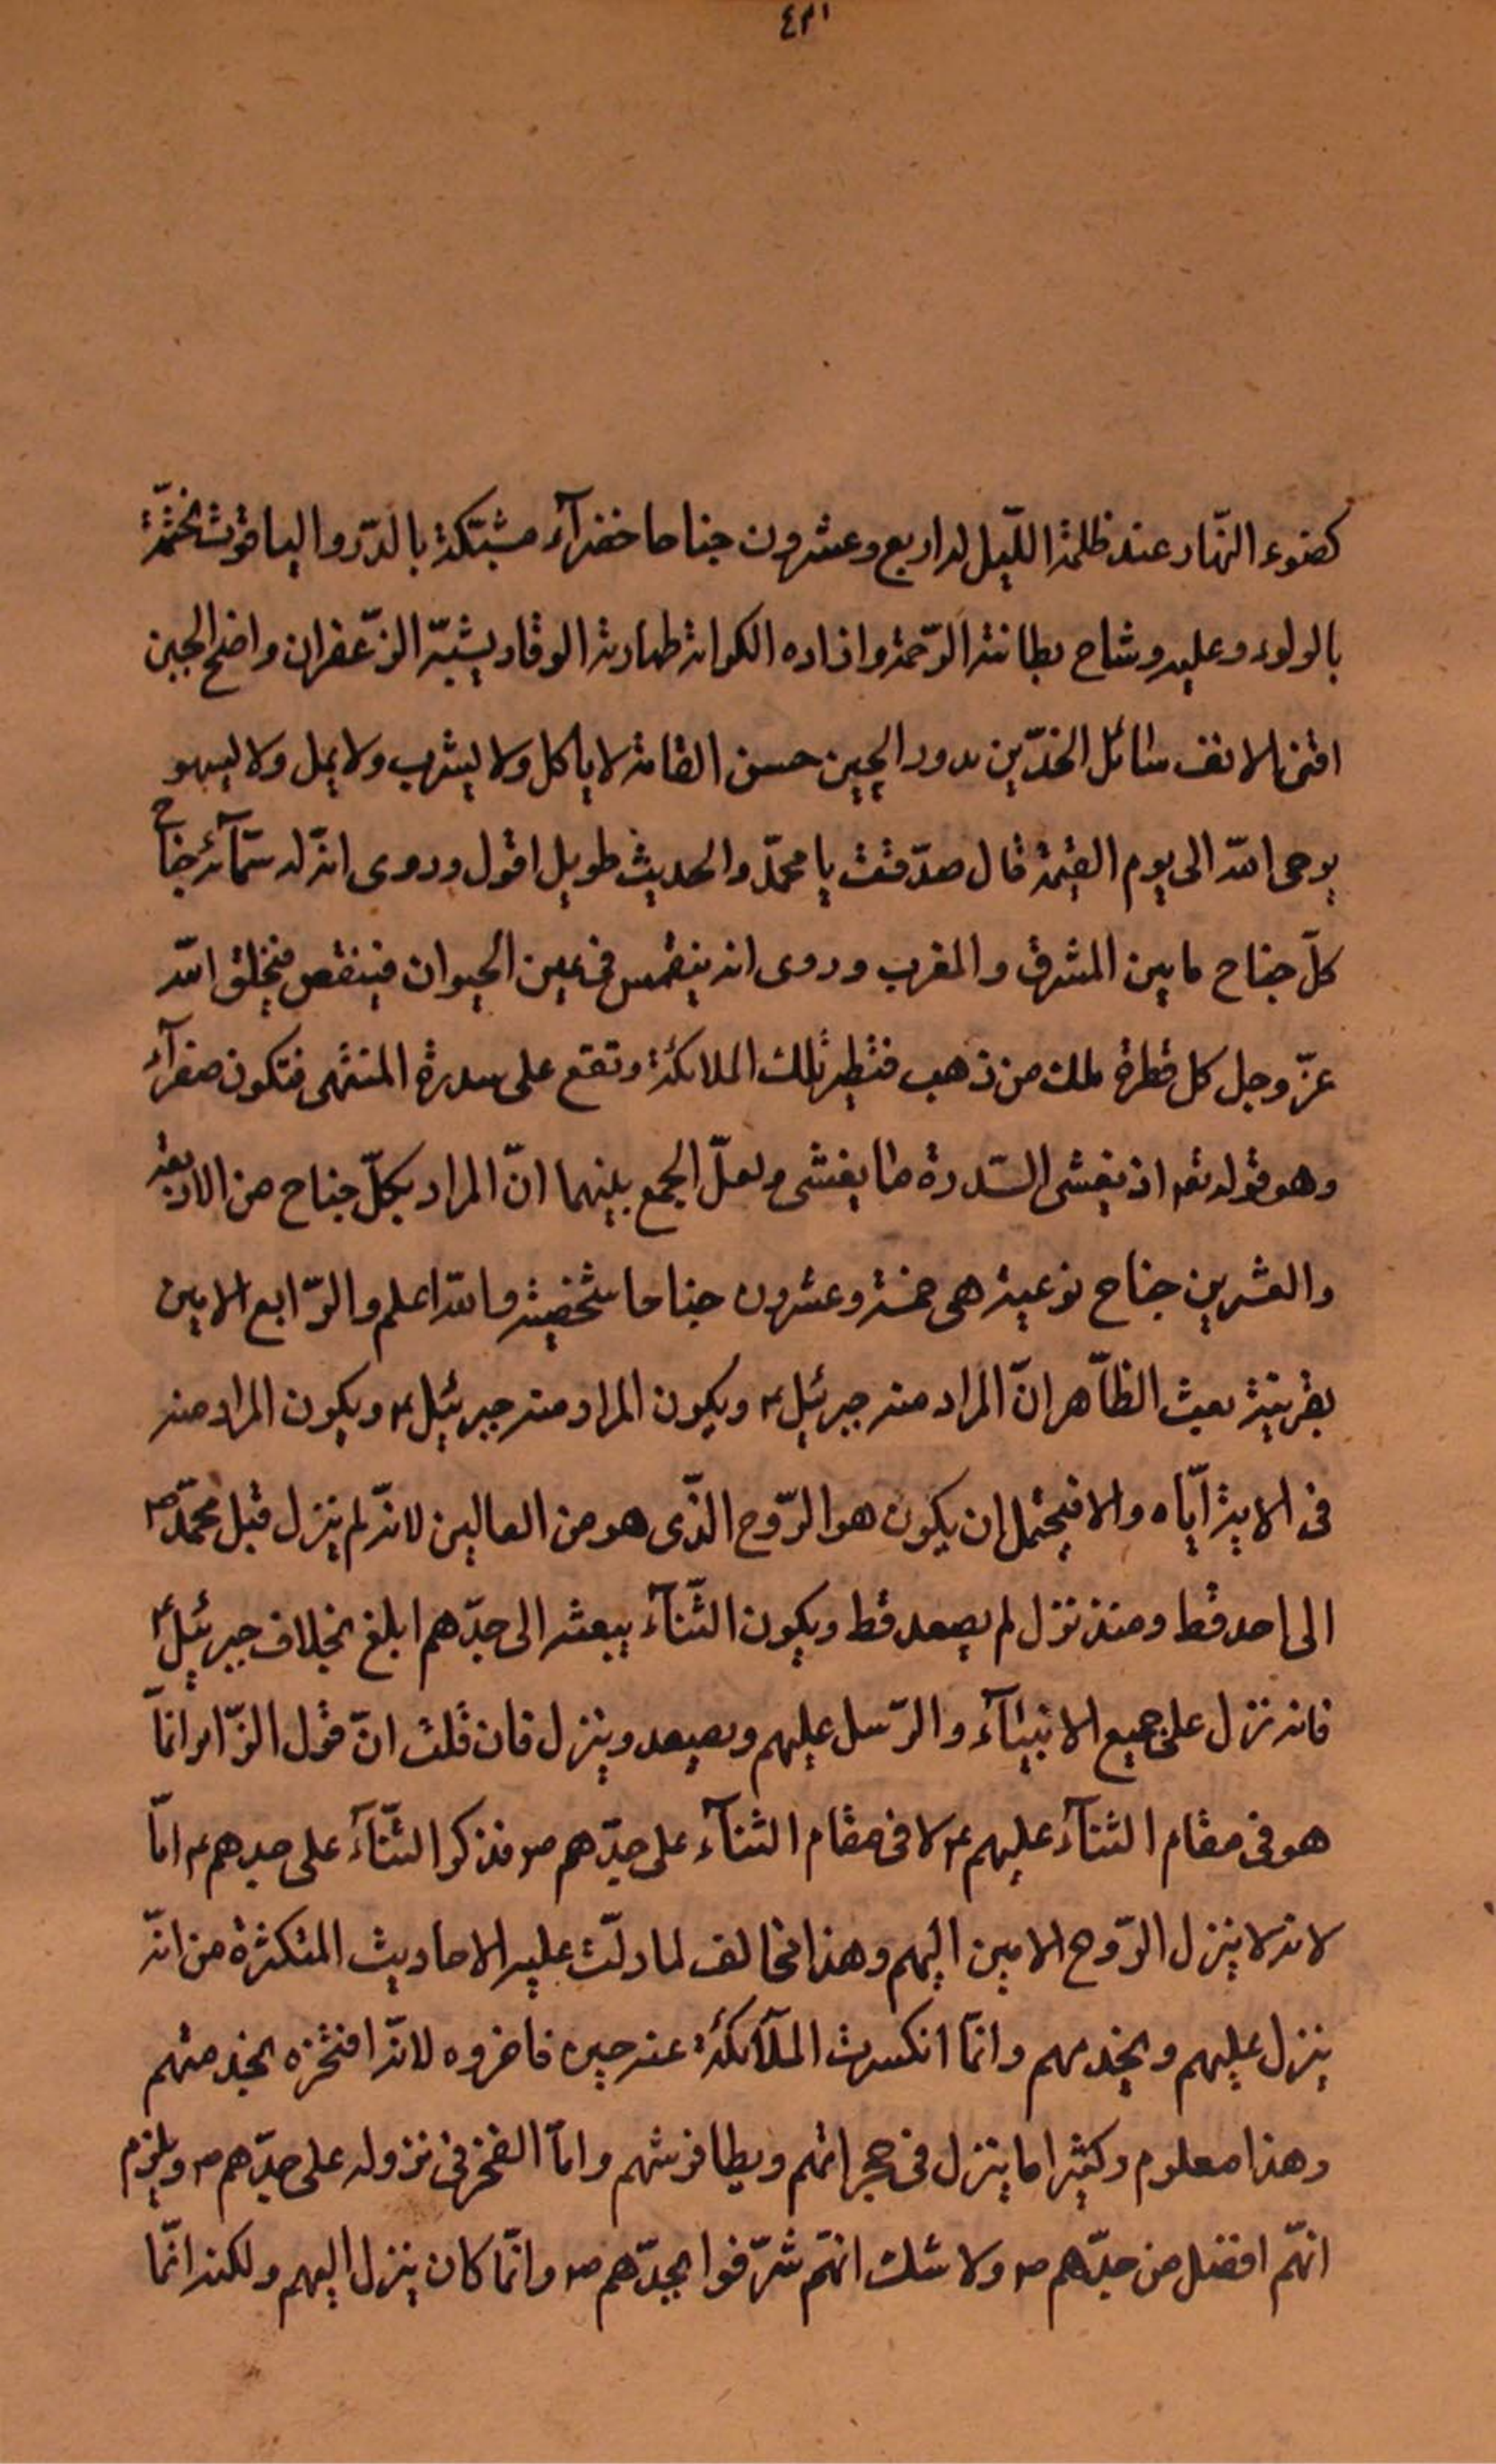 ٤٣١
كضوء النّهار عند ظلمة اللّيل له اربع وعشرون جناحا خضرآء مشبّكة بالدّر والياقوت مختّمة
بالولوء وعليه وشاح بطانته الرّحمة وازاره الكرامة طهارته الوقار ريشه الزّعفران واضح الجبين
اقنى الانف سائل الخدّين مدور الجبين حسن القامة لا ياكل ولا يشرب ولا يمل ولا يسهو
بوحى الله الى يوم القيمة قال صدّقت يا محمّد والحديث طويل اقول وروى انّ له ستمآئة جناح
كلّ جناح ما بين المشرق والمغرب وروى انه ينغمس فى عين الحيوان فينتفض فيخلق الله
عزّ وجل كل قطرة ملك من ذهب فتطير تلك الملائكة وتقع على سدرة المنتهى فتكون صفرآء
وهو قوله تعه اذ يغشى السّدرة ما يغشى ولعلّ الجمع بينهما انّ المراد بكلّ جناح من الاربعة
والعشرين جناح نوعية هى خمسة وعشرون جناحا شخصية والله اعلم والرّابع الامين
بقرينة بعث الظّاهر انّ المراد منه جبرئيل ۴ ويكون المراد منه جبرئيل ۴ ويكون المراد منه
فى الاية ايّاه والا فيحتمل ان يكون هو الرّوح الذّى هو من العالين لانّه لم ينزل قبل محمّد ص
الى احد قط ومنذ نزل لم يصعد قط ويكون الثّنآء ببعثه الى جدّهم ابلغ بخلاف جبرئيل ۴
فانه نزل على جميع الانبيآء والرّسل عليهم ويصعد وينزل فان قلت انّ قول الزّائر انمّا
هو فى مقام الثنآء عليهم ۴ لا فى مقام الثنآء على جدّهم ص فذكر الثّنآء على جدهم ۴ امّا
لانه لا ينزل الرّوح الامين اليهم وهذا مخالف لما دلّت عليه الاحاديث المتكثرة من انّه
ينزل عليهم ويخدمهم وانمّا انكسرت الملآئكة عنه حين فاخروه لانّه افتخره بخدمتهم
وهذا معلوم وكثيرا ما ينزل فى حجراتهم ويطا فرشهم وامّا الفخر فى نزوله على جدّهم ص ويلزم
انهّم افضل من جدّهم ص ولا شك انهّم شرّفوا بجدّهم ص وانمّا كان ينزل اليهم ولكنه انمّا